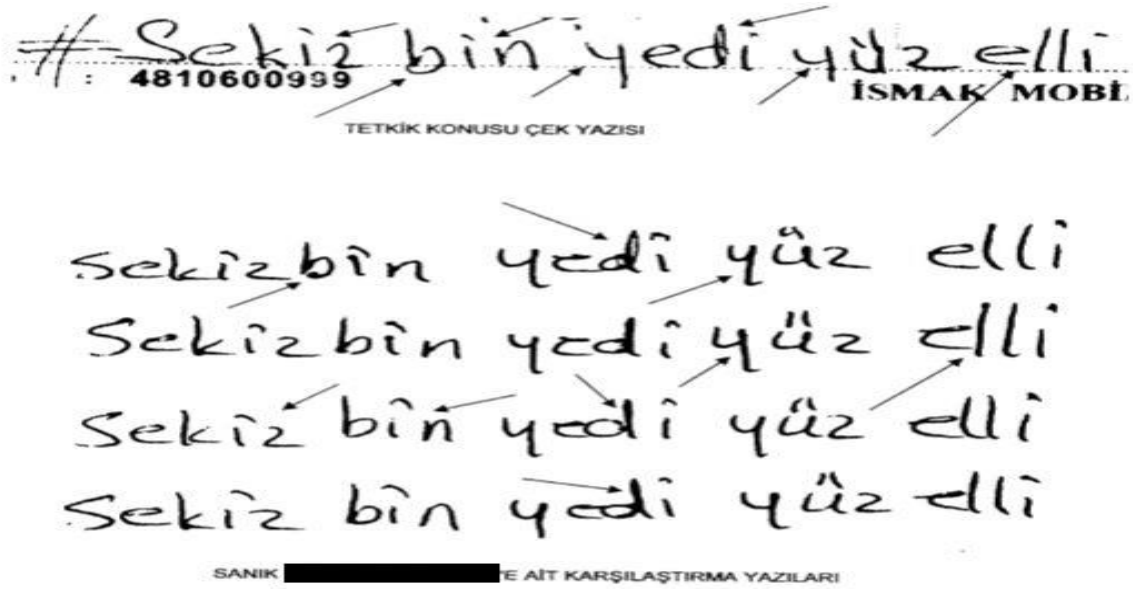 # Sekiz bin yedi yüz elli
: 4810600999 İSMAK MOBİL
TETKİK KONUSU ÇEK YAZISI
sekiz bin yedi yüz elli
Sekiz bin yedi yüz elli
Sekiz bin yedi yüz elli
Sekiz bin yedi yüz elli
SANIK 'E AİT KARŞILAŞTIRMA YAZILARI